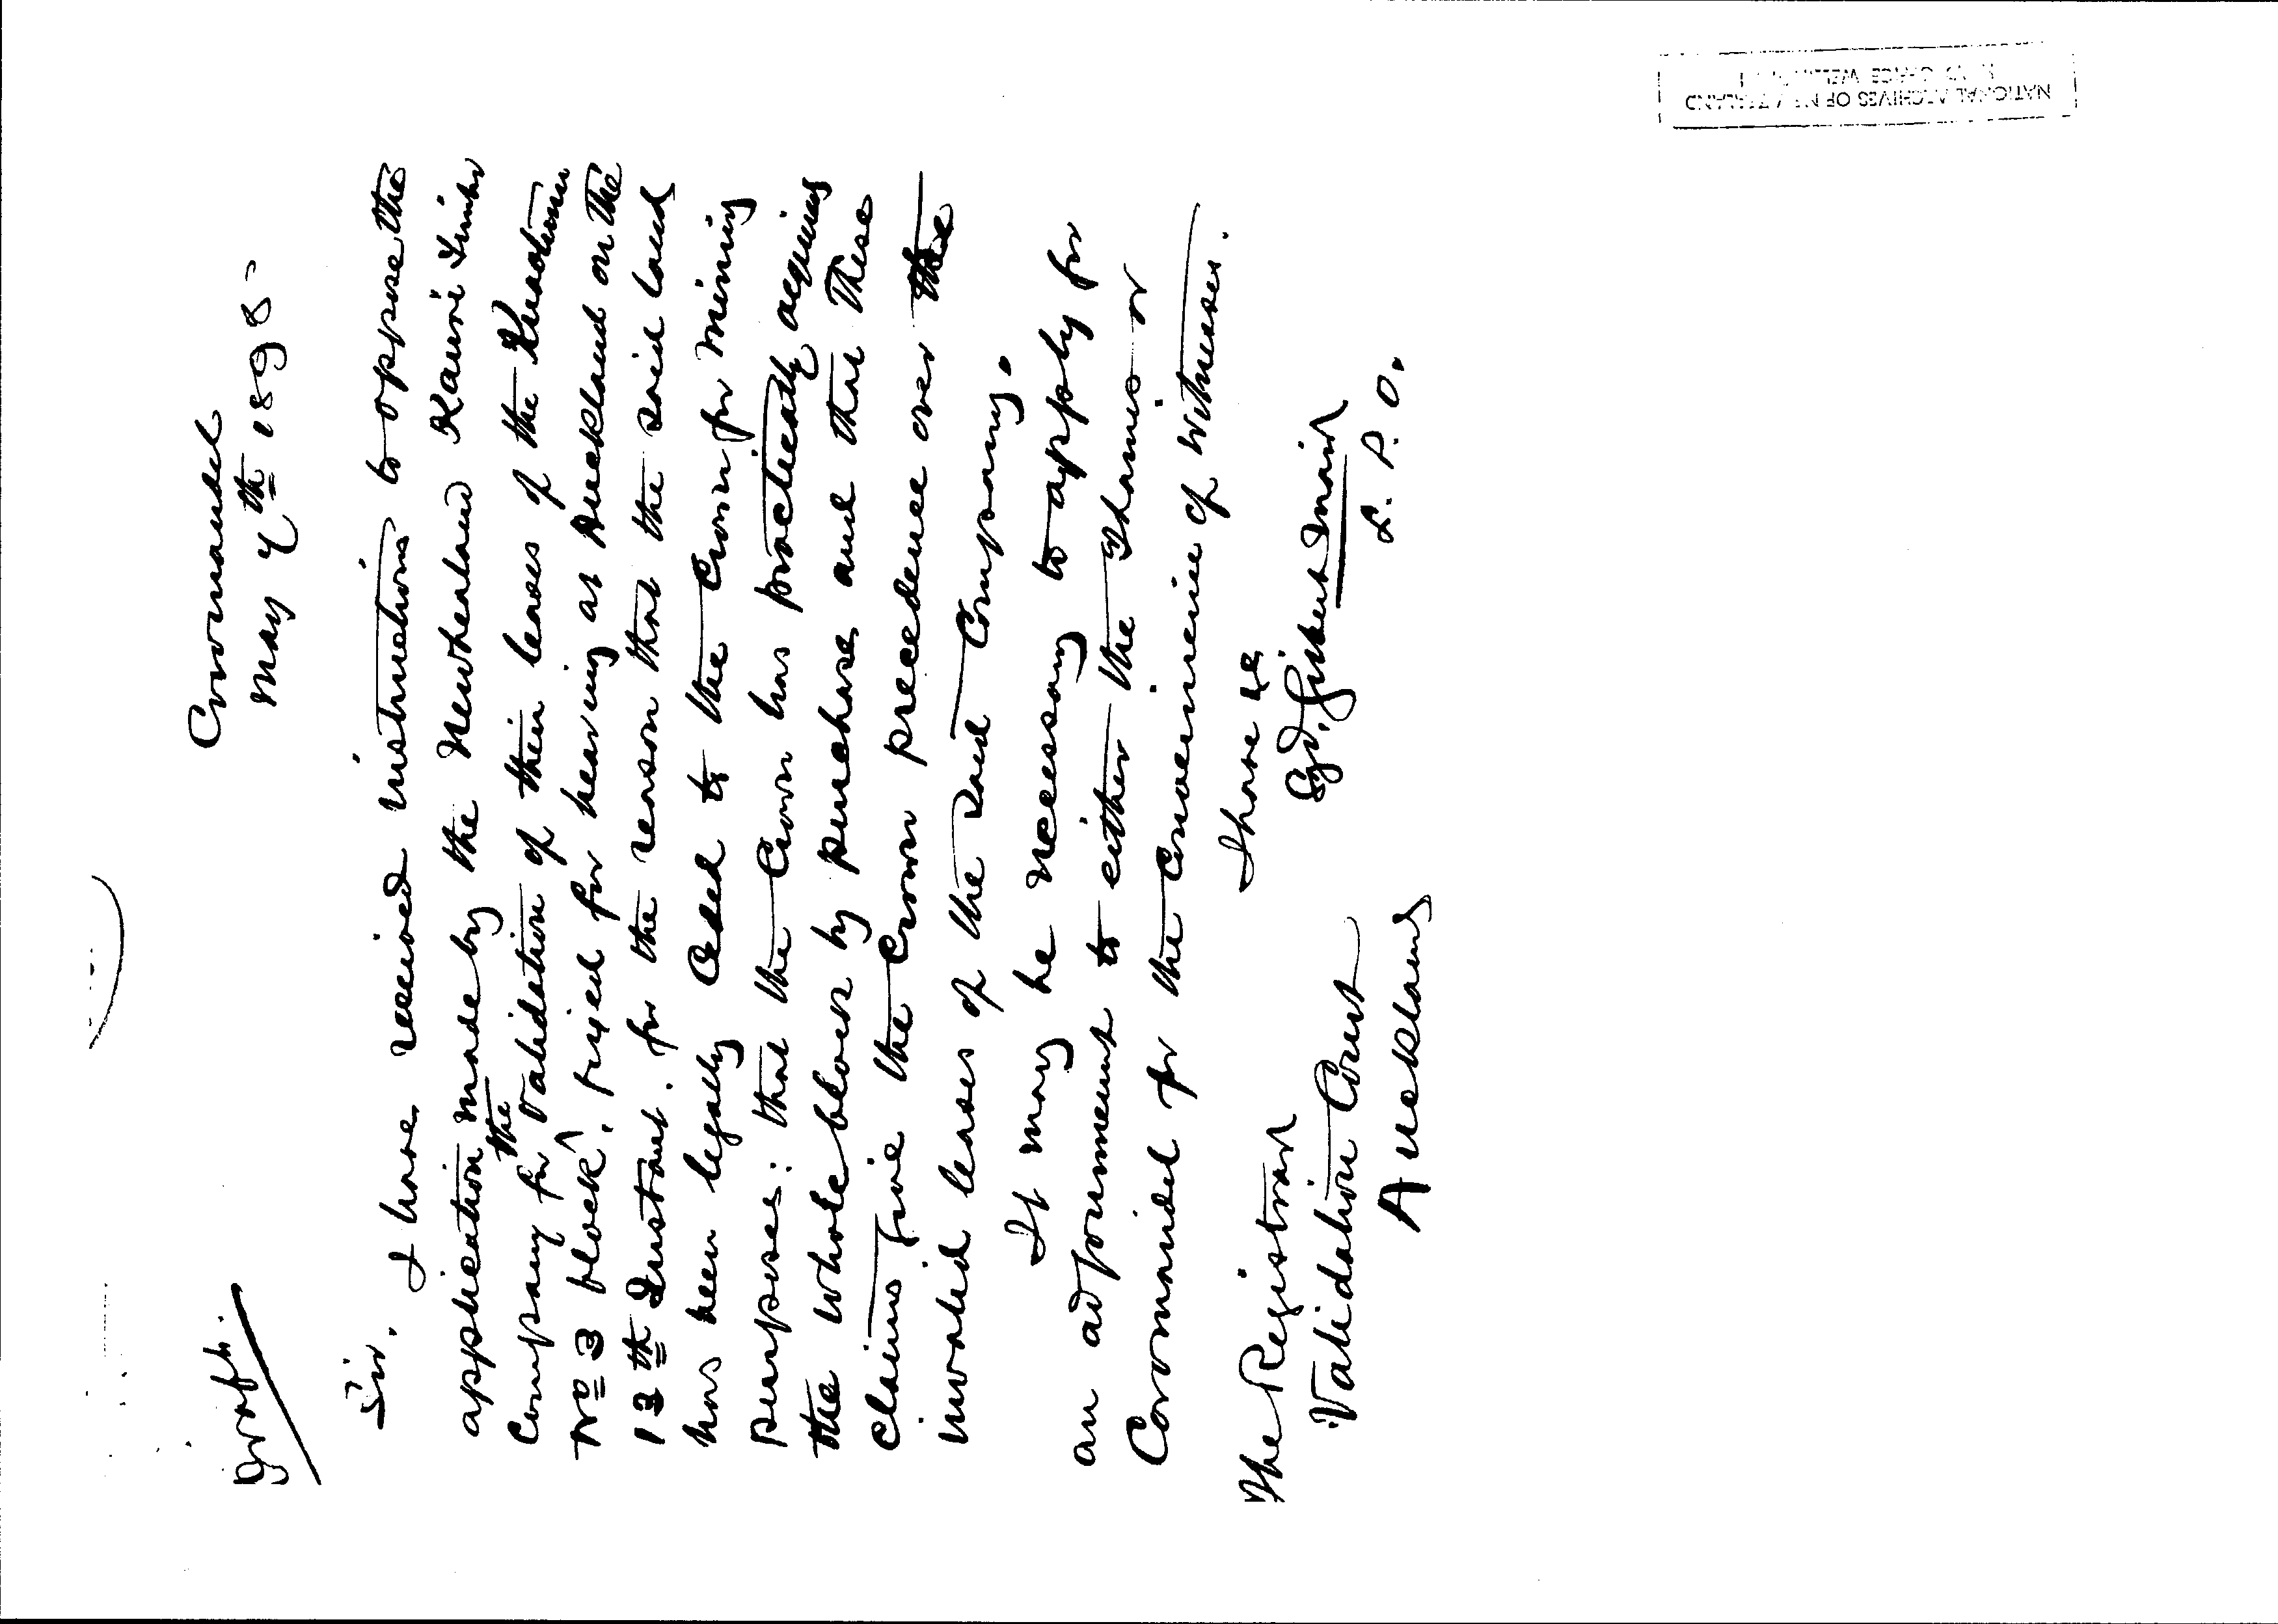 Draft.
Coromandel
May 4th 1898
Sir.
I have received instructions to oppose the
application made by the Newzealand Kauri Timber
Company for the validation of their leases of the Kuaotunu
No 3 block, fixed for hearing at Auckland on the
13th Instant. for the reason that the said land
has been legally Ceded to the Crown for mining
purposes: that the Crown has practically acquired
the whole block by purchase and that these
claims give the Crown precedence over the
invalid leases of the said Company.
It may be necessary to apply for
an adjournment to either the Thames or
Coromandel for the convenience of witnesses.
I have &c
Sgd. Gilbert Mair
L. P. O.
The Registrar
Validation Court
Auckland
NATIONAL ARCHIVES OF NEW ZEALAND
HEAD OFFICE WELLINGTON